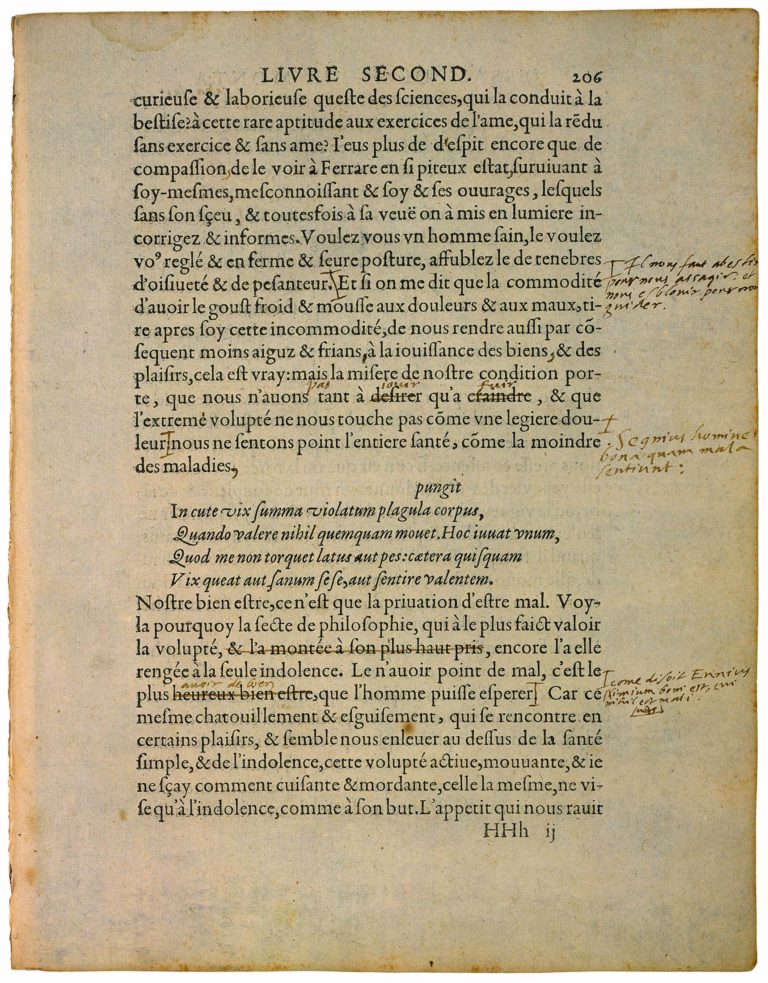 LIVRE SECOND. 206
curieuse & laborieuse queste des sciences, qui la conduit à la
bestise? à cette rare aptitude aux exercices de l'ame, qui la rẽdu
sans exercice & sans ame? I'eus plus de despit encore que de
compassion, de le voir à Ferrare en si piteux estat, suruiuant à
soy-mesmes, mesconnoissant & soy & ses ouurages, lesquels
sans son sçeu, & toutesfois à sa veuë on à mis en lumiere in-
corrigez & informes. Voulez vous vn homme sain, le voulez
voꝰ reglé & en ferme & seure posture, affublez le de tenebres
d'oisiueté & de pesanteur. Et si on me dit que la commodité
Il nous faut abestir
pour nous assagir: et
nous esblouir pour nous
guider.
d'auoir le goust froid & mousse aux douleurs & aux maux, ti-
re apres soy cette incommodité, de nous rendre aussi par cõ-
sequent moins aiguz & frians, à la iouissance des biens, & des
plaisirs, cela est vray: mais la misere de nostre condition por-
pas iouir fuir
te, que nous n'auons tant à desirer qu'a craindre, & que
l'extreme volupté ne nous touche pas cõme vne legiere dou-
leur nous ne sentons point l'entiere santé, cõme la moindre
Segnius homines
bona quam mala
sentiunt:
des maladies,
pungit
In cute vix summa violatum plagula corpus,
Quando valere nihil quemquam mouet. Hoc iuuat vnum,
Quod me non torquet latus aut pes: cætera quisquam
Vix queat aut sanum sese, aut sentire valentem.
Nostre bien estre, ce n'est que la priuation d'estre mal. Voy-
la pourquoy la secte de philosophie, qui à le plus faict valoir
la volupté, & l'a montée à son plus haut pris, encore l'a elle
rengée à la seule indolence. Le n'auoir point de mal, c'est le
auoir de bien
plus heureux bien estre, que l'homme puisse esperer Car cé
come disoit Ennius
nimium boni est, cui
nihil est mali.
mesme chatouillement & esguisement, qui se rencontre en
certains plaisirs, & semble nous enleuer au dessus de la santé
simple, & de l'indolence, cette volupté actiue, mouuante, & ie
ne sçay comment cuisante & mordante, celle la mesme, ne vi-
se qu'à l'indolence, comme à son but. L'appetit qui nous rauit
HHh ij